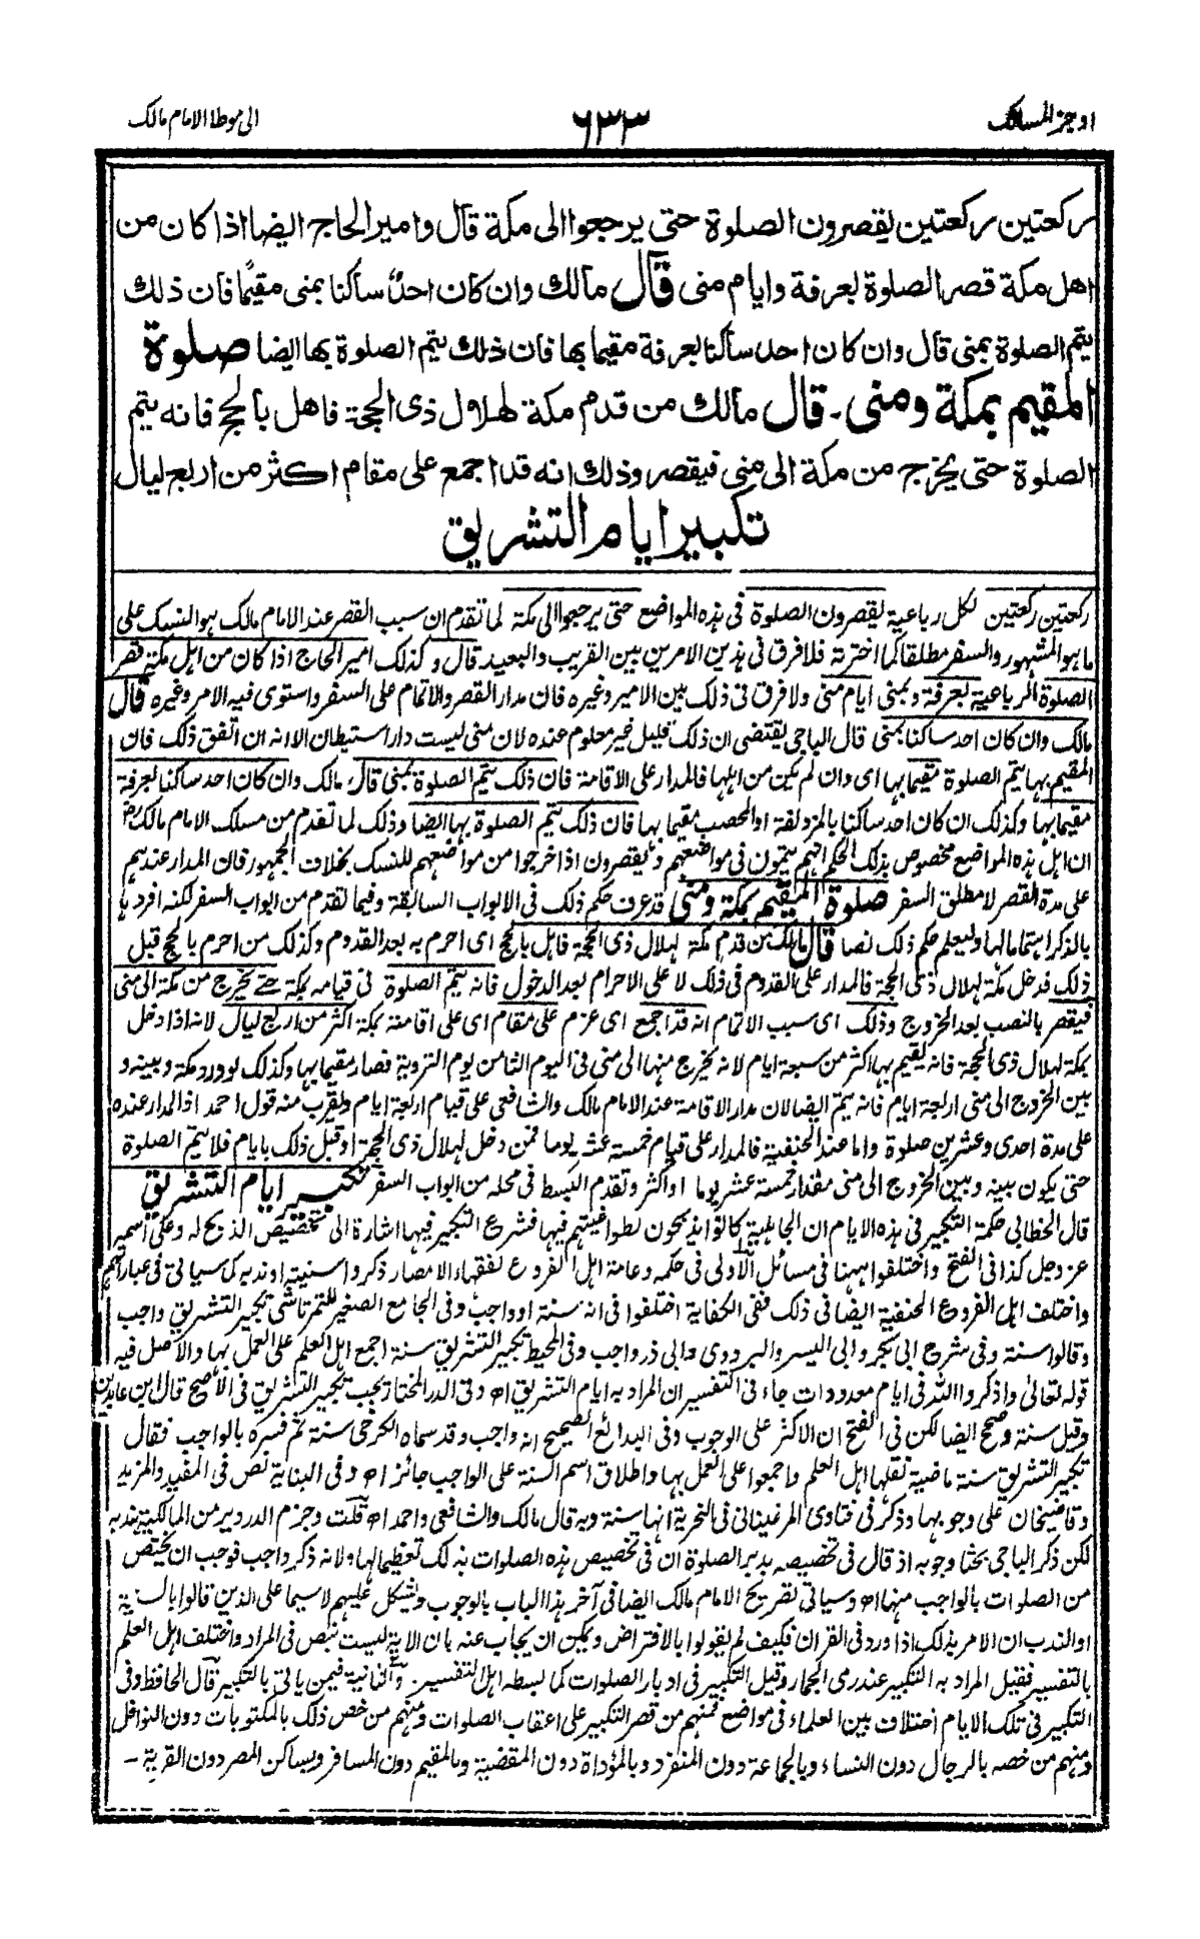 اوجز المسالك
٦٣٣
الى موطا الامام مالك
ركعتين ركعتين يقصرون الصلوة حتى يرجعوا الى مكة قال وامير الحاج ايضا اذا كان من
اهل مكة قصر الصلوة بعرفة وايام منى قال مالك وان كان احدٌ ساكنا بمنى مقيمًا فان ذلك
يتم الصلوة بمنى قال وان كان احد ساكنا بعرفة مقيما بها فان ذلك يتم الصلوة بها ايضا صلوة
المقيم بمكة ومنى - قال مالك من قدم مكة لهلال ذى الحجة فاهل بالحج فانه يتم
الصلوة حتى يخرج من مكة الى منى فيقصر وذلك انه قد اجمع على مقام اكثر من اربع ليال
تكبير ايام التشريق
ركعتين ركعتين لكل رباعية يقصرون الصلوة فى هذه المواضع حتى يرجعوا الى مكة لما تقدم ان سبب القصر عند الامام مالك هو النسك على
ما هو المشهور والسفر مطلقا كما اخترته فلا فرق فى هذين الامرين بين القريب والبعيد قال وكذلك امير الحاج اذا كان من اهل مكة قصر
الصلوة الرباعية بعرفة وبمنى ايام منى ولا فرق فى ذلك بين الامير وغيره فان مدار القصر والاتمام على السفر واستوى فيه الامر وغيره قال
مالك وان كان احد ساكنا بمنى قال الباجى يقتضى ان ذلك قليل غير معلوم عنده لان منى ليست دار استيطان الا انه ان اتفق ذلك فان
المقيم بها يتم الصلوة مقيما بها اى وان لم يكن من اهلها فالمدار على الاقامة فان ذلك يتم الصلوة بمنى قال مالك وان كان احد ساكنا بعرفة
مقيما بها وكذلك ان كان احد ساكنا بالمزدلفة او المحصب مقيما بها فان ذلك يتم الصلوة بها ايضا وذلك لما تقدم من مسلك الامام مالك رض
ان اهل هذه المواضع مخصوص بذلك الحكم انهم يتمون فى مواضعهم ويقصرون اذا خرجوا من مواضعهم للنسك بخلاف الجمهور فان المدار عندهم
على مدة القصر لا مطلق السفر صلوة المقيم بمكة ومنى قد عرف حكم ذلك فى الابواب السابقة وفيما تقدم من ابواب السفر لكنه افردها
بالذكر اهتماما لها وليعلم حكم ذلك نصا قال مالك من قدم مكة لهلال ذى الحجة فاهل بالحج اى احرم به بعد القدوم وكذلك من احرم بالحج قبل
ذلك فدخل مكة لهلال ذى الحجة فالمدار على القدوم فى ذلك لا على الاحرام بعد الدخول فانه يتم الصلوة فى قيامه بمكة حتى يخرج من مكة الى منى
فيقصر بالنصب بعد الخروج وذلك اى سبب الاتمام انه قد اجمع اى عزم على مقام اى على اقامته بمكة اكثر من اربع ليال لانه اذا دخل
بمكة لهلال ذى الحجة فانه يقيم بها اكثر من سبعة ايام لانه يخرج منها الى منى فى اليوم الثامن يوم التروية فصار مقيما بها وكذلك لو ورد مكة وبينه و
بين الخروج الى منى اربعة ايام فانه يتم ايضا لان مدار الاقامة عند الامام مالك والشافعى على قيام اربعة ايام ويقرب منه قول احمد اذ المدار عنده
على مدة احدى وعشرين صلوة واما عند الحنفية فالمدار على قيام خمسة عشر يوما فمن دخل لهلال ذى الحجة او قبل ذلك بايام فلا يتم الصلوة
حتى يكون بينه وبين الخروج الى منى مقدار خمسة عشر يوما او اكثر وتقدم البسط فى محله من ابواب السفر تكبير ايام التشريق
قال الخطابى حكمة التكبير فى هذه الايام ان الجاهلية كانوا يذبحون لطواغيتهم فيها فشرع التكبير فيها اشارة الى تخصيص الذبح له وعلى اسمه
عز وجل كذا فى الفتح واختلفوا ههنا فى مسائل الاولى فى حكمه وعامة اهل الفروع لفقهاء الامصار ذكروا سنيته او ندبه كما سياتى فى عباراتهم
واختلف اهل الفروع الحنفية ايضا فى ذلك ففى الكفاية اختلفوا فى انه سنة او واجب وفى الجامع الصغير للتمرتاشى تكبير التشريق واجب
وقالوا سنة وفى شرح ابى بكر وابى اليسر والبردوى وابى ذر واجب وفى المحيط تكبير التشريق سنة اجمع اهل العلم على العمل بها والاصل فيه
قوله تعالى واذكروا الله فى ايام معدودات جاء فى التفسير ان المراد به ايام التشريق اه وفى الدر المختار يجب تكبير التشريق فى الاصح قال ابن عابدين
وقيل سنة وصحح ايضا لكن فى الفتح ان الاكثر على الوجوب وفى البدائع الصحيح انه واجب وقد سماه الكرخى سنة ثم فسره بالواجب فقال
تكبير التشريق سنة ماضية نقلها اهل العلم واجمعوا على العمل بها واطلاق اسم السنة على الواجب جائز اه وفى البناية نص فى المفيد والمزيد
وقاضيخان على وجوبها وذكر فى فتاوى المرغينانى فى التحرية انها سنة وبه قال مالك والشافعى واحمد اه قلت وجزم الدردير من المالكية بندبه
لكن ذكر الباجى بحثا وجوبه اذ قال فى تخصيصه بدبر الصلوة ان فى تخصيص هذه الصلوات بذلك تعظيما لها ولانه ذكر واجب فوجب ان يختص
من الصلوات بالواجب منها اه وسياتى تصريح الامام مالك ايضا فى آخر هذا الباب بالوجوب ويشكل عليهم لاسيما على الذين قالوا بالسنة
او الندب ان الامر بذلك اذا ورد فى القران فكيف لم يقولوا بالافتراض ويمكن ان يجاب عنه بان الاية ليست بنص فى المراد واختلف اهل العلم
بالتفسير فقيل المراد به التكبير عند رمى الجمار وقيل التكبير فى ادبار الصلوات كما بسطه اهل التفسير - والثانية فيمن ياتى بالتكبير قال الحافظ وفى
التكبير فى تلك الايام اختلاف بين العلماء فى مواضع فمنهم من قصر التكبير على اعقاب الصلوات ومنهم من خص ذلك بالمكتوبات دون النوافل
ومنهم من خصه بالرجال دون النساء وبالجماعة دون المنفرد وبالمؤداة دون المقضية وبالمقيم دون المسافر وبساكن المصر دون القرية -